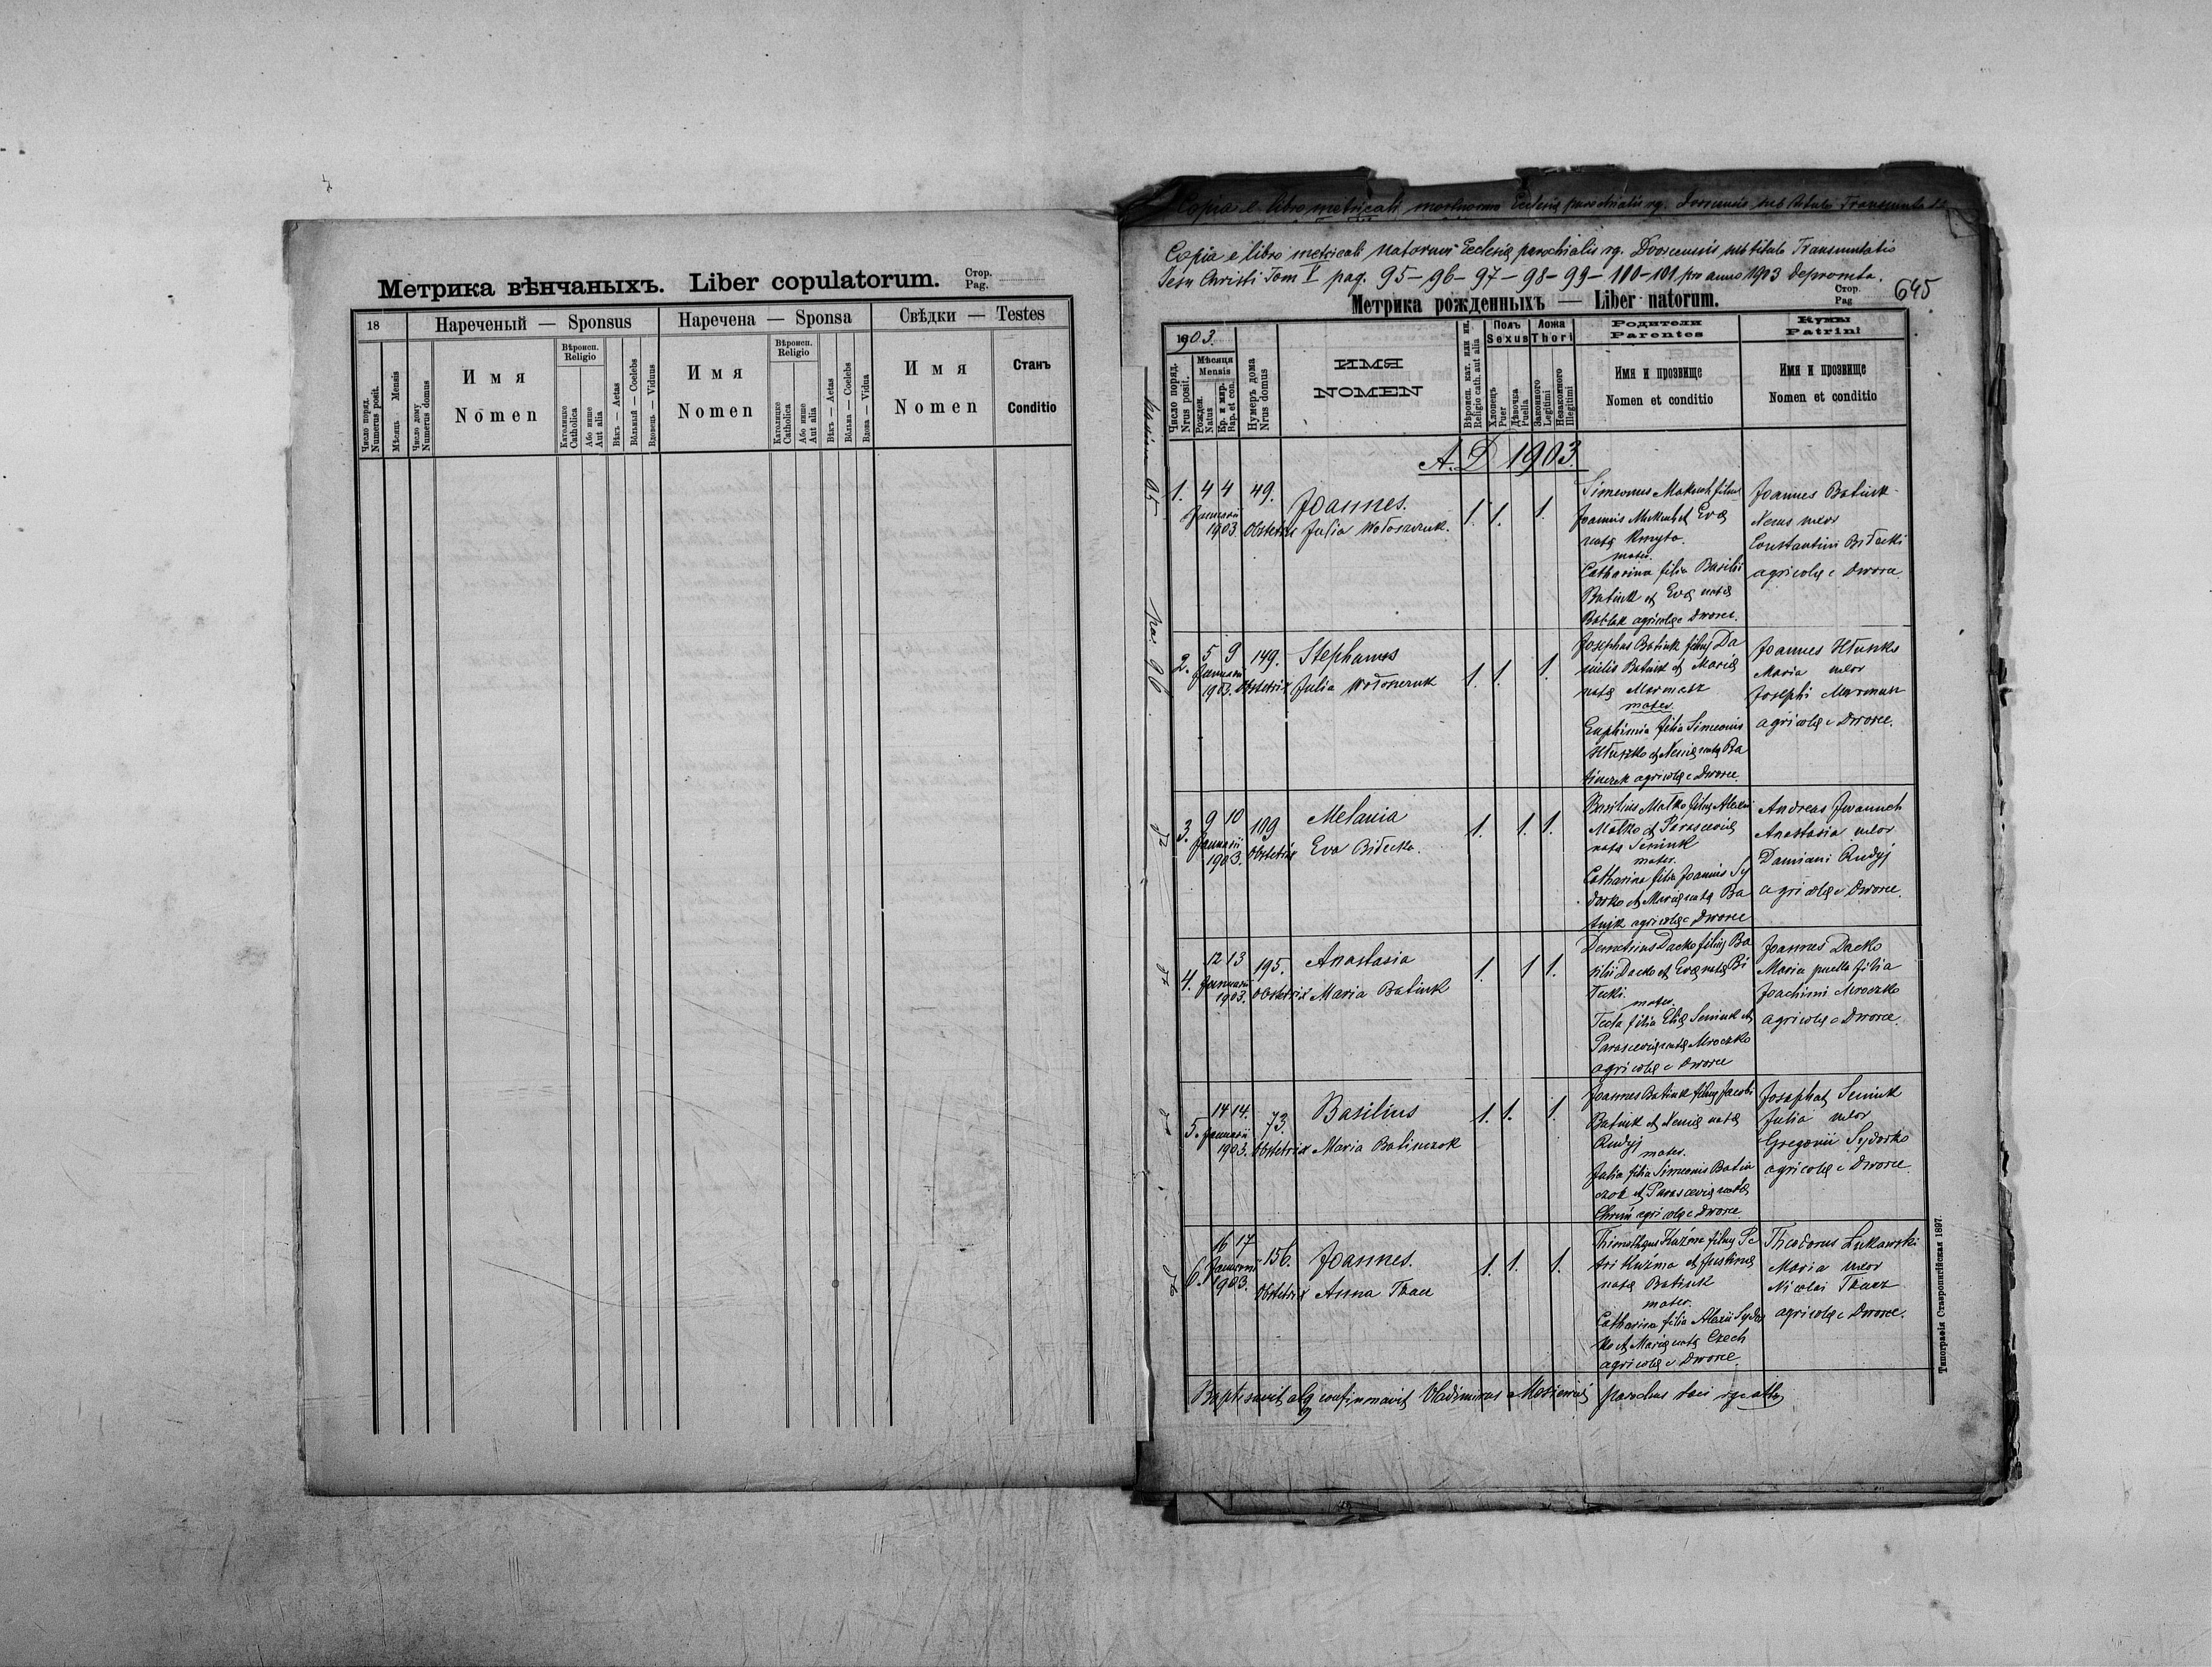 Метрика вѣнчаныхъ. Liber copulatorum.
Стор.
Pag.
18
Нареченый — Sponsus
Наречена — Sponsa
Свѣдки — Testes
Число поряд.
Numerus posit.
Мѣсяць Mensis
Число дому
Numerus domus
Имя
Nomen
Вѣроисп.
Religio
Католицке
Catholica
Або инше
Aut alia
Вѣкъ — Aetas
Вôльный — Coelebs
Вдовець — Viduus
Имя
Nomen
Вѣроисп.
Religio
Католицке
Catholica
Або инше
Aut alia
Вѣкъ — Aetas
Вôльна — Coelebs
Вдова — Vidua
Имя
Nomen
Станъ
Conditio
Copia e libro metricali mortuorum Ecclesiæ parochialis rg.
Copia e libro metricali natorum Ecclesiæ parochialis rg. Dvorcensis sub titulo Transmutatio
Jesu Christi Tom V pag. 95 – 96 – 97 – 98 – 99 – 100 – 101 pro anno 1903 deprompta.
645
Метрика рожденныхъ — Liber natorum.
Стор.
Pag
1903.
Число поряд.
Nrus posit.
Мѣсяця
Mensis
Рожден.
Natus
Кр. и мир.
Bap. et con.
Нумеръ дома
Nrus domus
ИМЯ
NOMEN
Вѣроисп. кат. или ин.
Religio cath. aut alia
Полъ
Sexus
Хлопець
Puer
Дѣвочка
Puella
Ложа
Thori
Законного
Legitimi
Незаконного
Illegitimi
Родители
Parentes
Имя и прозвище
Nomen et conditio
Кумы
Patrini
Имя и прозвище
Nomen et conditio
A. D 1903.
1. 4 4 49. Joannes. 1. 1. 1.
Januarii
1903. Obstetrix Julia Wołoszczuk.
Joannis et Eva
nata Kmyta
mater.
Catharina filia Basilii
Batiuk et Eva nata
agricolæ e Dworce.
Joannes Batiuk
uxor
Constantini Biłecki
agricolæ e Dworce
2. 5 9 149. Stephanus 1. 1. 1.
Januarii
1903. Obstetrix Julia Wołoszczuk
Josephus Batiuk filius Da
nielis Batiuk et Maria
nata Marmasz
mater.
Euphimia filia Simeonis
agricolæ e Dworce.
Joannes
Maria uxor
Josephi
agricolæ e Dworce.
3. 9 10 109 Melania 1. 1. 1.
Januarii
1903. Obstetrix Eva Biłecka.
Basilius Małko filius Alexii
Małko et Parascevia
nata Seniuk
mater.
Catharina filia Joannis Sy
dorko et Maria nata Ba
tiuk agricolæ e Dworce
Andreas
Anastasia uxor
Damiani Rudyj
agricolæ e Dworce.
4. 12 13 195. Anastasia 1. 1 1.
Januarii
1903. Obstetrix Maria Batiuk
Demetrius Dacko filius Ba
silii Dacko et Eva nata Bi
łecki.
mater.
Tecla filia Eliæ Seniuk et
Parascevia nata Mroczko
agricolæ e Dworce
Joannes Dacko
Maria puella filia
Joachimi Mroczko
agricolæ e Dworce.
5. 14 14. 73. Basilius 1. 1. 1.
Januarii
1903. Obstetrix Maria Batiuczok
Joannes Batiuk filius Jacobi
Batiuk et Xenia nata
Rudyj
mater.
Julia filia Simeonis Batiu
czok et Parascevia nata
agricolæ e Dworce.
Josaphat Seniuk
Julia uxor
Gregorii Sydorko
agricolæ e Dworce.
6. 16 17 156. Joannes. 1. 1. 1.
Januarii
1903. Obstetrix Anna Tkacz
Kuźma filius Pe
tri Kuźma et Justina
nata Batiuk
mater.
Catharina filia Alexii Sydor
ko et Maria nata Czech
agricolæ e Dworce.
Theodorus Lukawski
Maria uxor
Nicolai Tkacz
agricolæ e Dworce.
Baptisavit atq confirmavit Vladimirus parochus loci
Типографія Ставропигійская 1897.